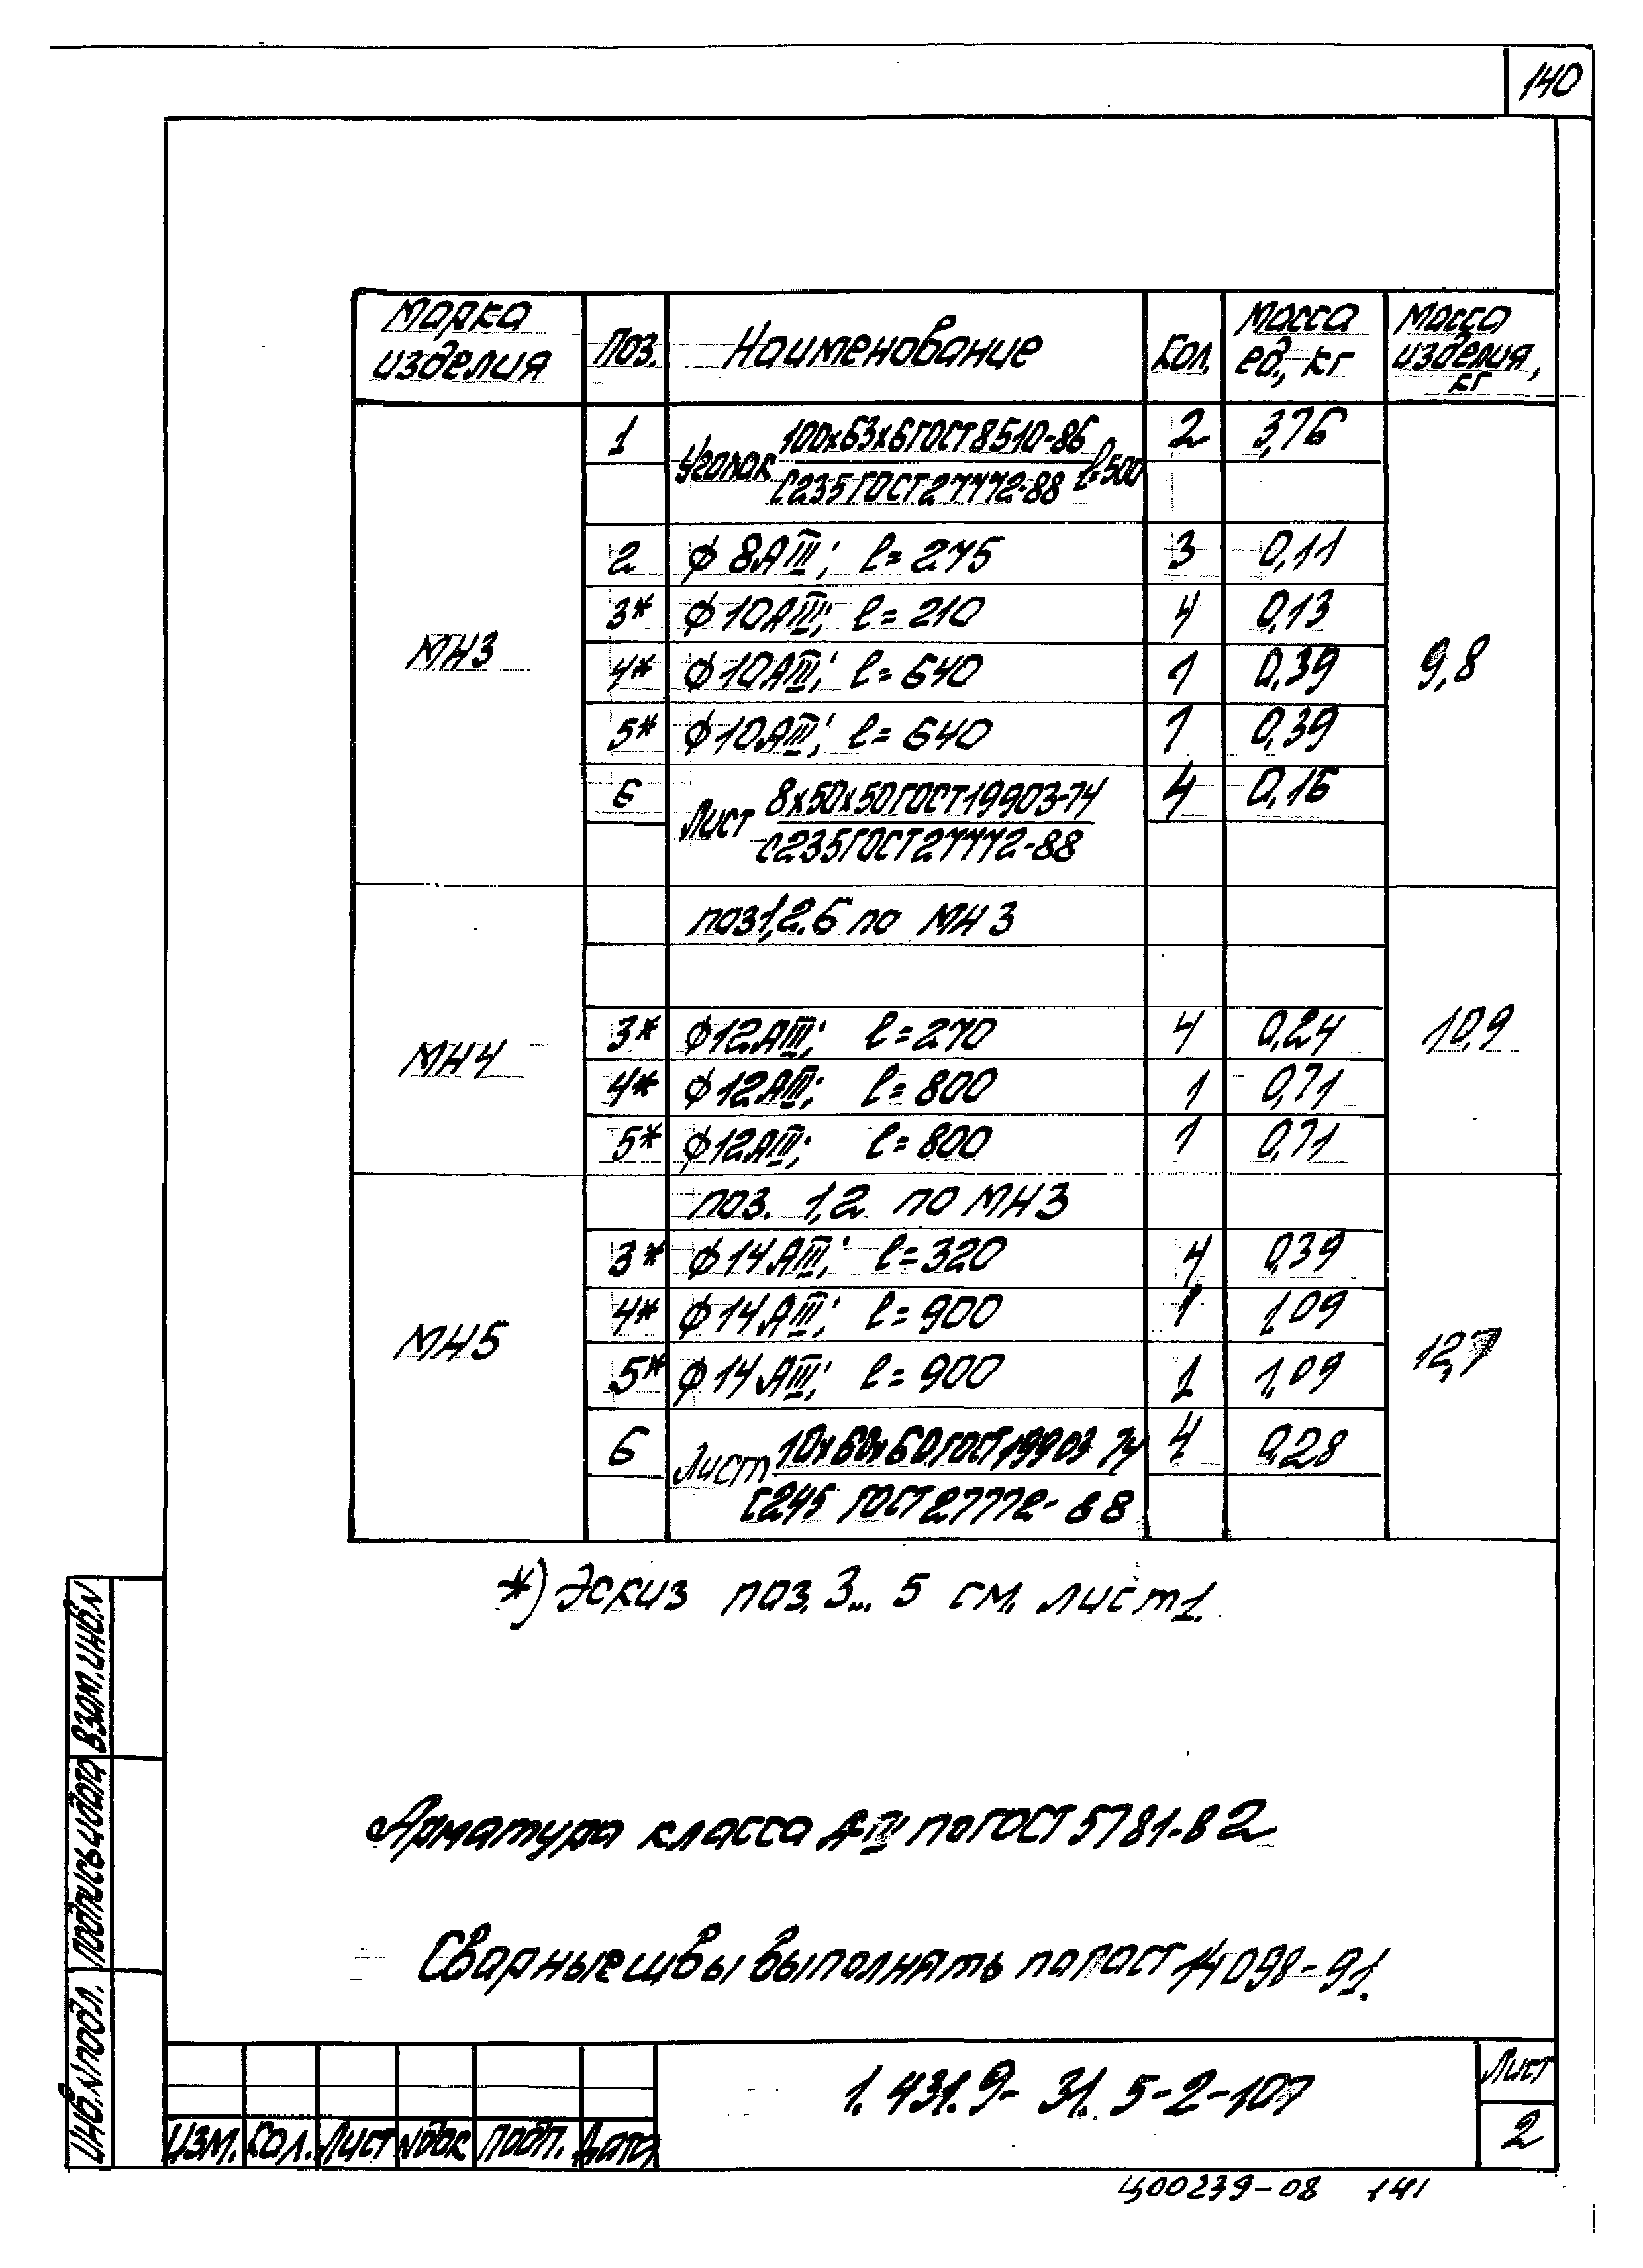 140
Марка изделия | Поз. | Наименование | Кол. | Масса ед., кг | Масса изделия, кг
МН3 | 9,8
1 | Уголок 100х63х6 ГОСТ 8510-86 / С235 ГОСТ 27772-88 ℓ=500 | 2 | 3,76
2 | ϕ 8АIII; ℓ=275 | 3 | 0,11
3* | ϕ10АIII; ℓ=210 | 4 | 0,13
4* | ϕ10АIII; ℓ=640 | 1 | 0,39
5* | ϕ10АIII; ℓ=640 | 1 | 0,39
6 | Лист 8х50х50 ГОСТ 19903-74 / С235 ГОСТ 27772-88 | 4 | 0,16
МН4 | 10,9
поз1,2.6 по МН3
3* | ϕ12АIII; ℓ=270 | 4 | 0,24
4* | ϕ12АIII; ℓ=800 | 1 | 0,71
5* | ϕ12АIII; ℓ=800 | 1 | 0,71
МН5 | 12,7
поз. 1,2 по МН3
3* | ϕ14АIII; ℓ=320 | 4 | 0,39
4* | ϕ14АIII; ℓ=900 | 1 | 1,09
5* | ϕ14АIII; ℓ=900 | 1 | 1,09
6 | Лист 10х60х60 ГОСТ 19903-74 / С245 ГОСТ 27772-88 | 4 | 0,28
*) Эскиз поз. 3... 5 см. лист 1.
Арматура класса А-III по ГОСТ 5781-82
Сварные швы выполнять по ГОСТ 14098-91.
Инв.N подл. | Подпись и дата | Взам.инв.N
Изм. | Кол. | Лист | Nдок | Подп. | Дата
1.431.9-31.5-2-107
Лист
2
Ц00239-08 141